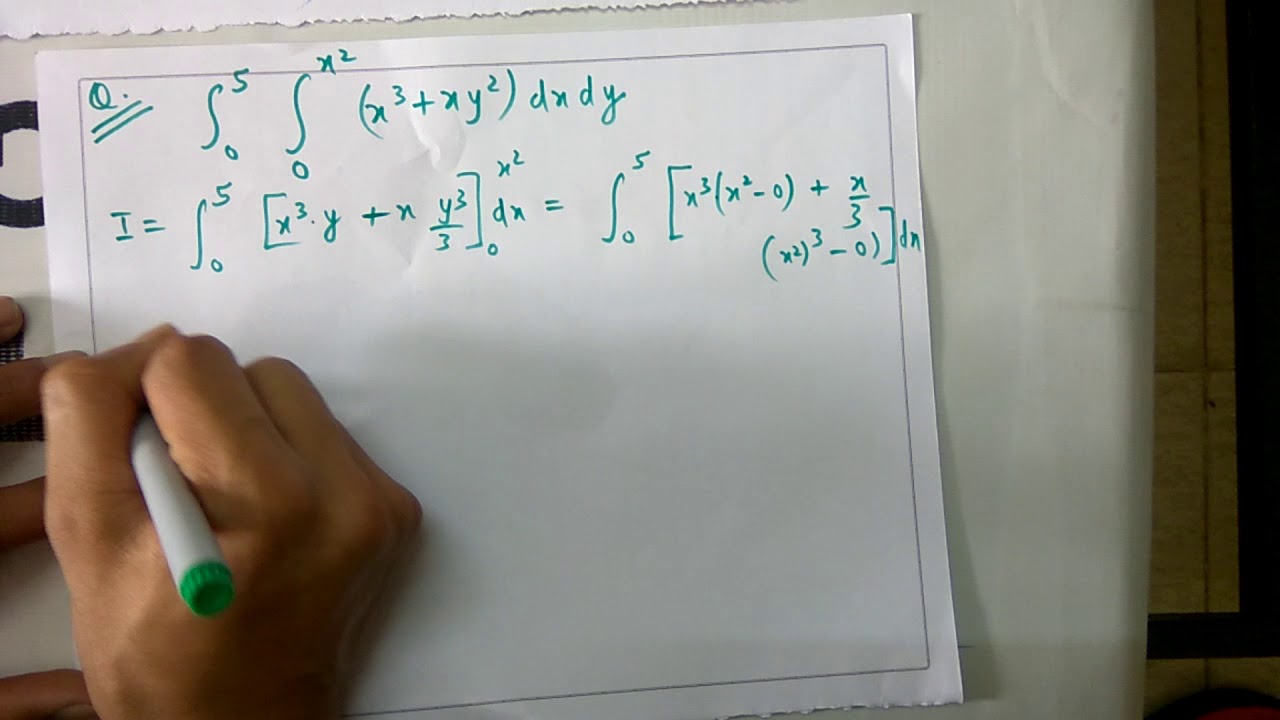 Q. ∫₀⁵ ∫₀^{x²} (x³ + xy²) dx dy
I = ∫₀⁵ [x³·y + x y³/3]₀^{x²} dx = ∫₀⁵ [x³(x² - 0) + x/3
(x²)³ - 0)] dx